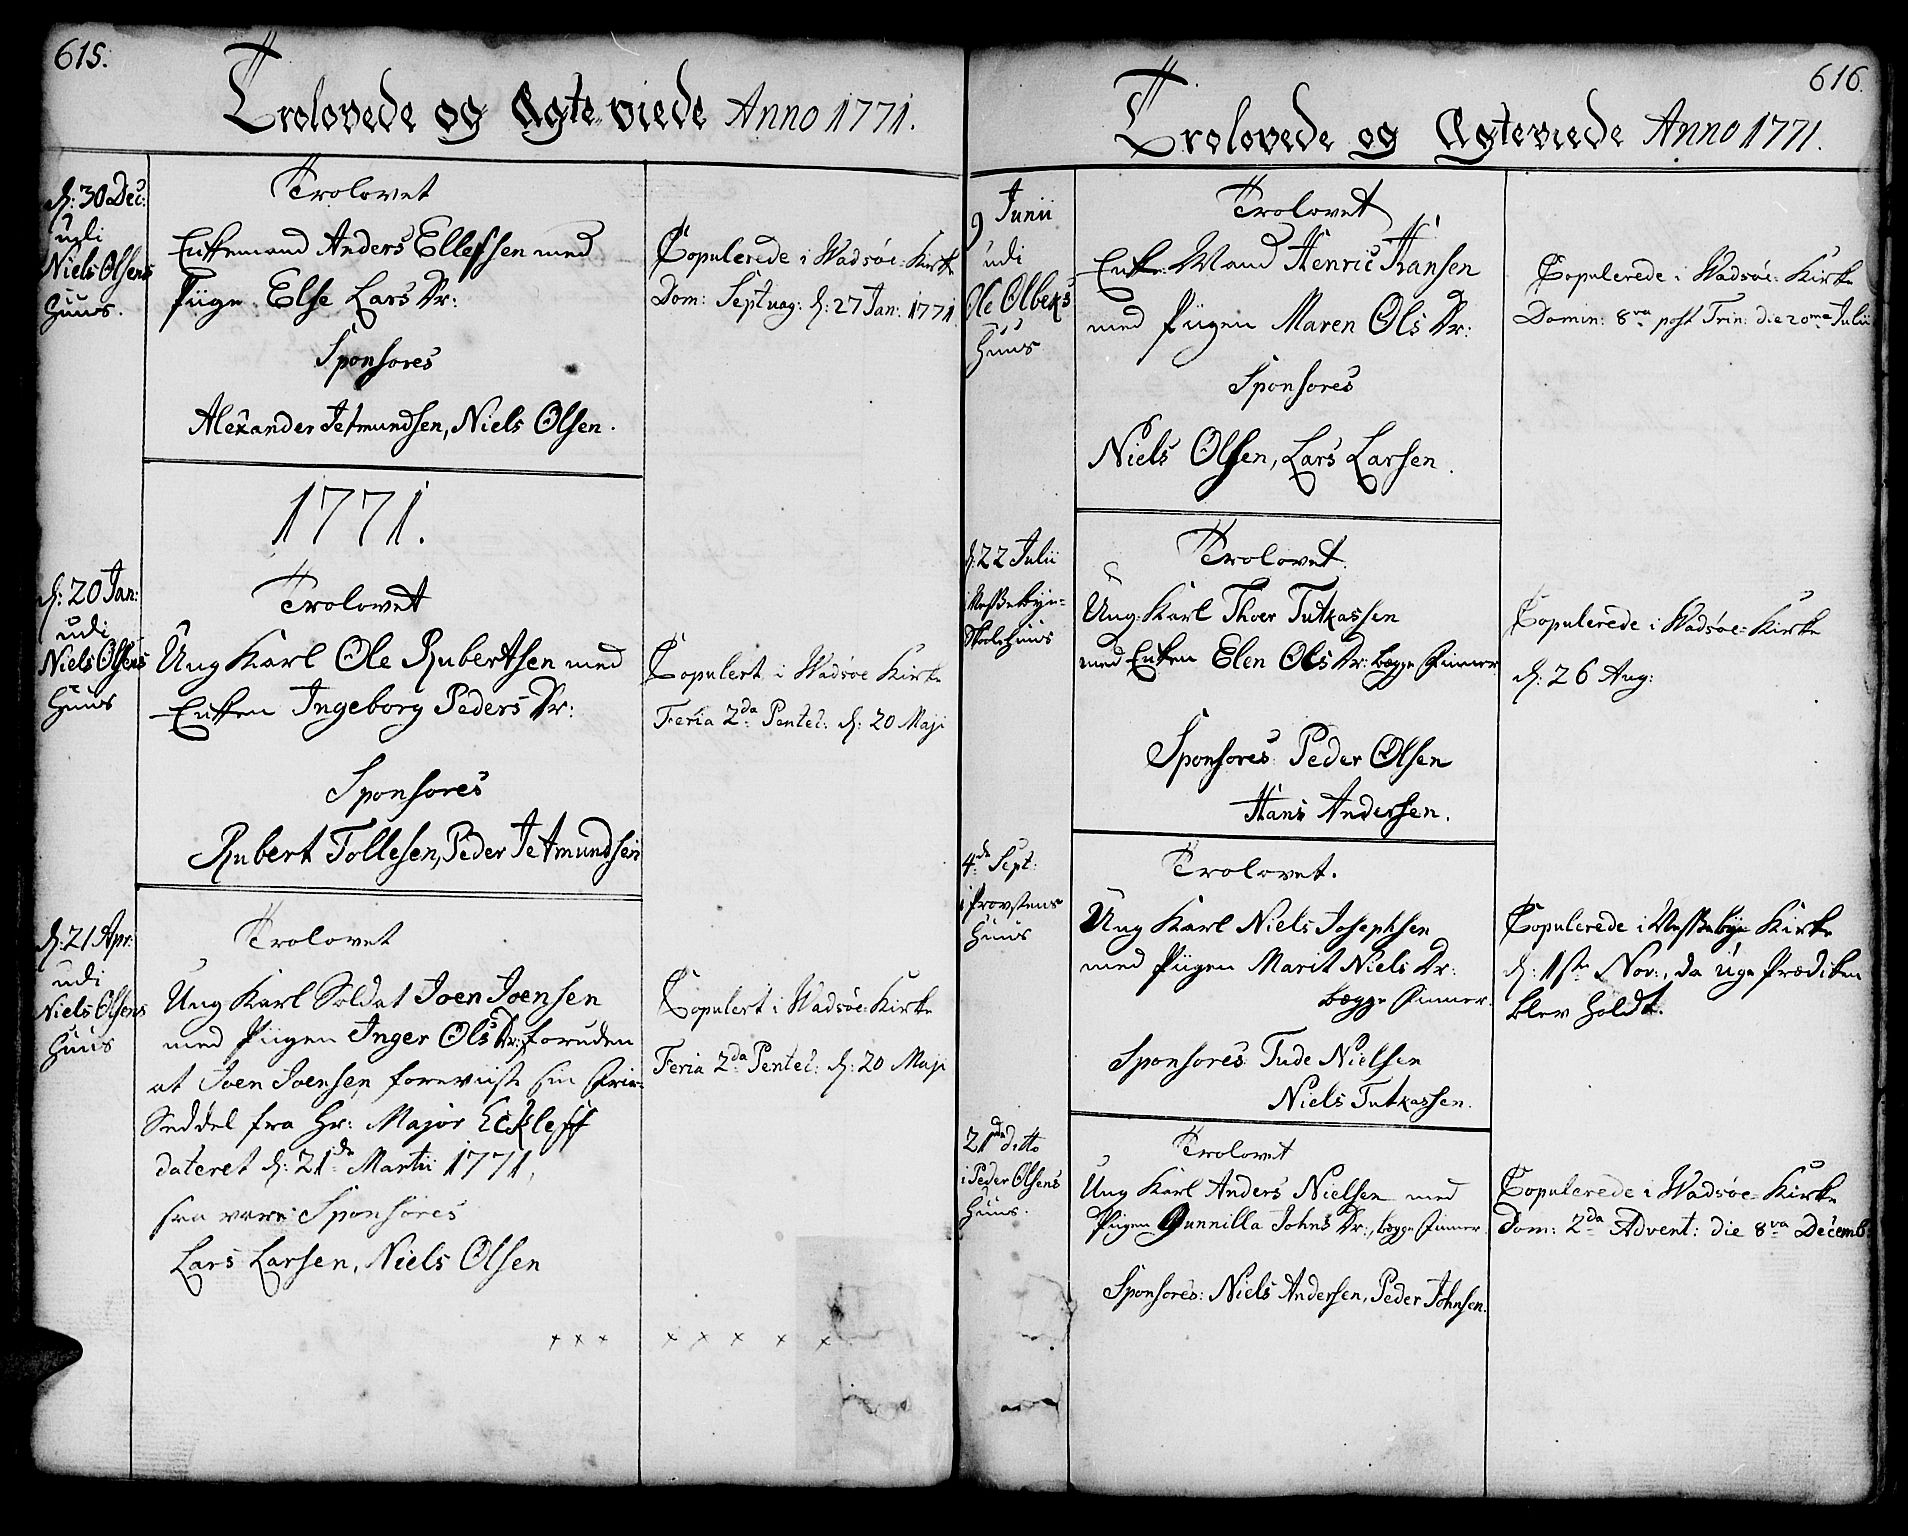 615.
Trolovede og Ægte viede Anno 1771.
d: 30 Dec:
udi
Niels Olsens
Huus.
Trolovet
Enkemand Anders Ellefsen med
Piige Else Lars Dr:
Sponsores
Alexander Jetmundsen, Niels Olsen.
Copulerede i Wadsøe Kirke
Dom: Septuag: d: 27 Jan: 1771
1771.
d: 20 Jan:
udi
Niels Olsens
Huus
Trolovet
Ung Karl Ole Rubertsen med
Enken Ingeborg Peders Dr:
Sponsores
Rubert Tollesen, Peder Jetmundsen
Copulert i Wadsøe Kirke
Feria 2da Pentec: d: 20 Maji
d: 21 Apr:
udi
Niels Olsens
Huus
Trolovet
Ung Karl Soldat Joen Joensen
med Piigen Inger Ols Dr: foruden
at Joen Joensen foreviiste sin Friе
Seddel fra Hr: Major Eckleff
dateret d: 21de Martii 1771,
saa vare Sponsores
Lars Larsen, Niels Olsen
Copulert i Wadsøe Kirke
Feria 2da Pentec: d: 20 Maji
× × × × × × × ×
616.
Trolovede og Ægteviede Anno 1771.
9 Junii
udi
Ole Olbeks
Huus
Trolovet
Enke-Mand Henric Hansen
med Piigen Maren Ols Dr:
Sponsores
Niels Olsen, Lars Larsen.
Copulerede i Wadsøe Kirke
Domin: 8va post Trin: die 20me Julii
d: 22 Julii
i Nessebye
Skolehuus
Trolovet.
Ung Karl Thoer Tutkassen
med Enken Elen Ols Dr: begge Finner
Sponsores Peder Olsen
Hans Andersen.
Copulerede i Wadsøe Kirke
d: 26 Aug:
4de Sept:
i Provstens
Huus
Trolovet.
Ung Karl Niels Josephsen
med Piigen Marit Niels Dr:
begge Finner.
Sponsores Tude Nielsen
Niels Tutkassen.
Copulerede i Nessebye Kirke
d: 1ste Nov:, da uge Prædiken
blev holdt.
21de ditto
i Peder Olsens
Huus.
Trolovet
Ung Karl Anders Nielsen med
Piigen Gunnilla Johns Dr:, begge Finner
Sponsores: Niels Andersen, Peder Johnsen.
Copulerede i Wadsøe Kirke
Dom: 2da Advent: die 8va Decemb.